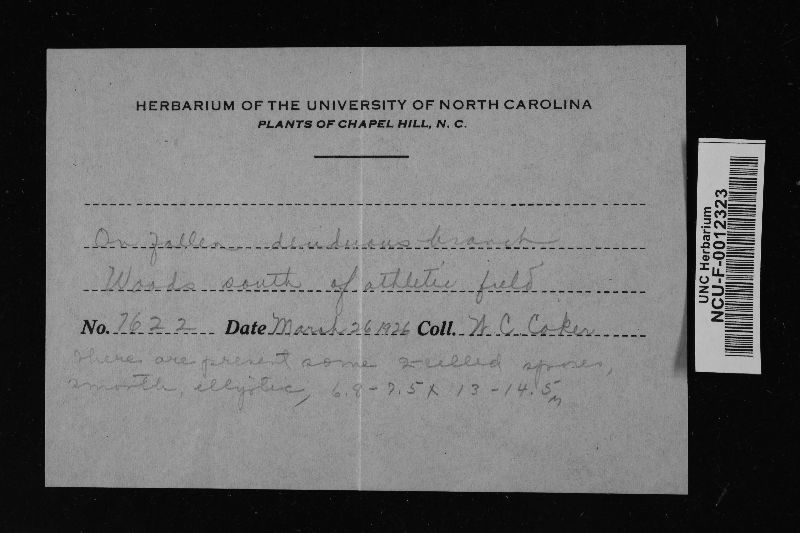 HERBARIUM OF THE UNIVERSITY OF NORTH CAROLINA
PLANTS OF CHAPEL HILL, N. C.
On fallen deciduous branch
Woods south of athletic field
No. 7622 Date March 26 1926 Coll. W. C. Coker
There are present some 2-celled spores,
smooth, elliptic, 6.8-7.5 x 13-14.5
UNC Herbarium
NCU-F-0012323